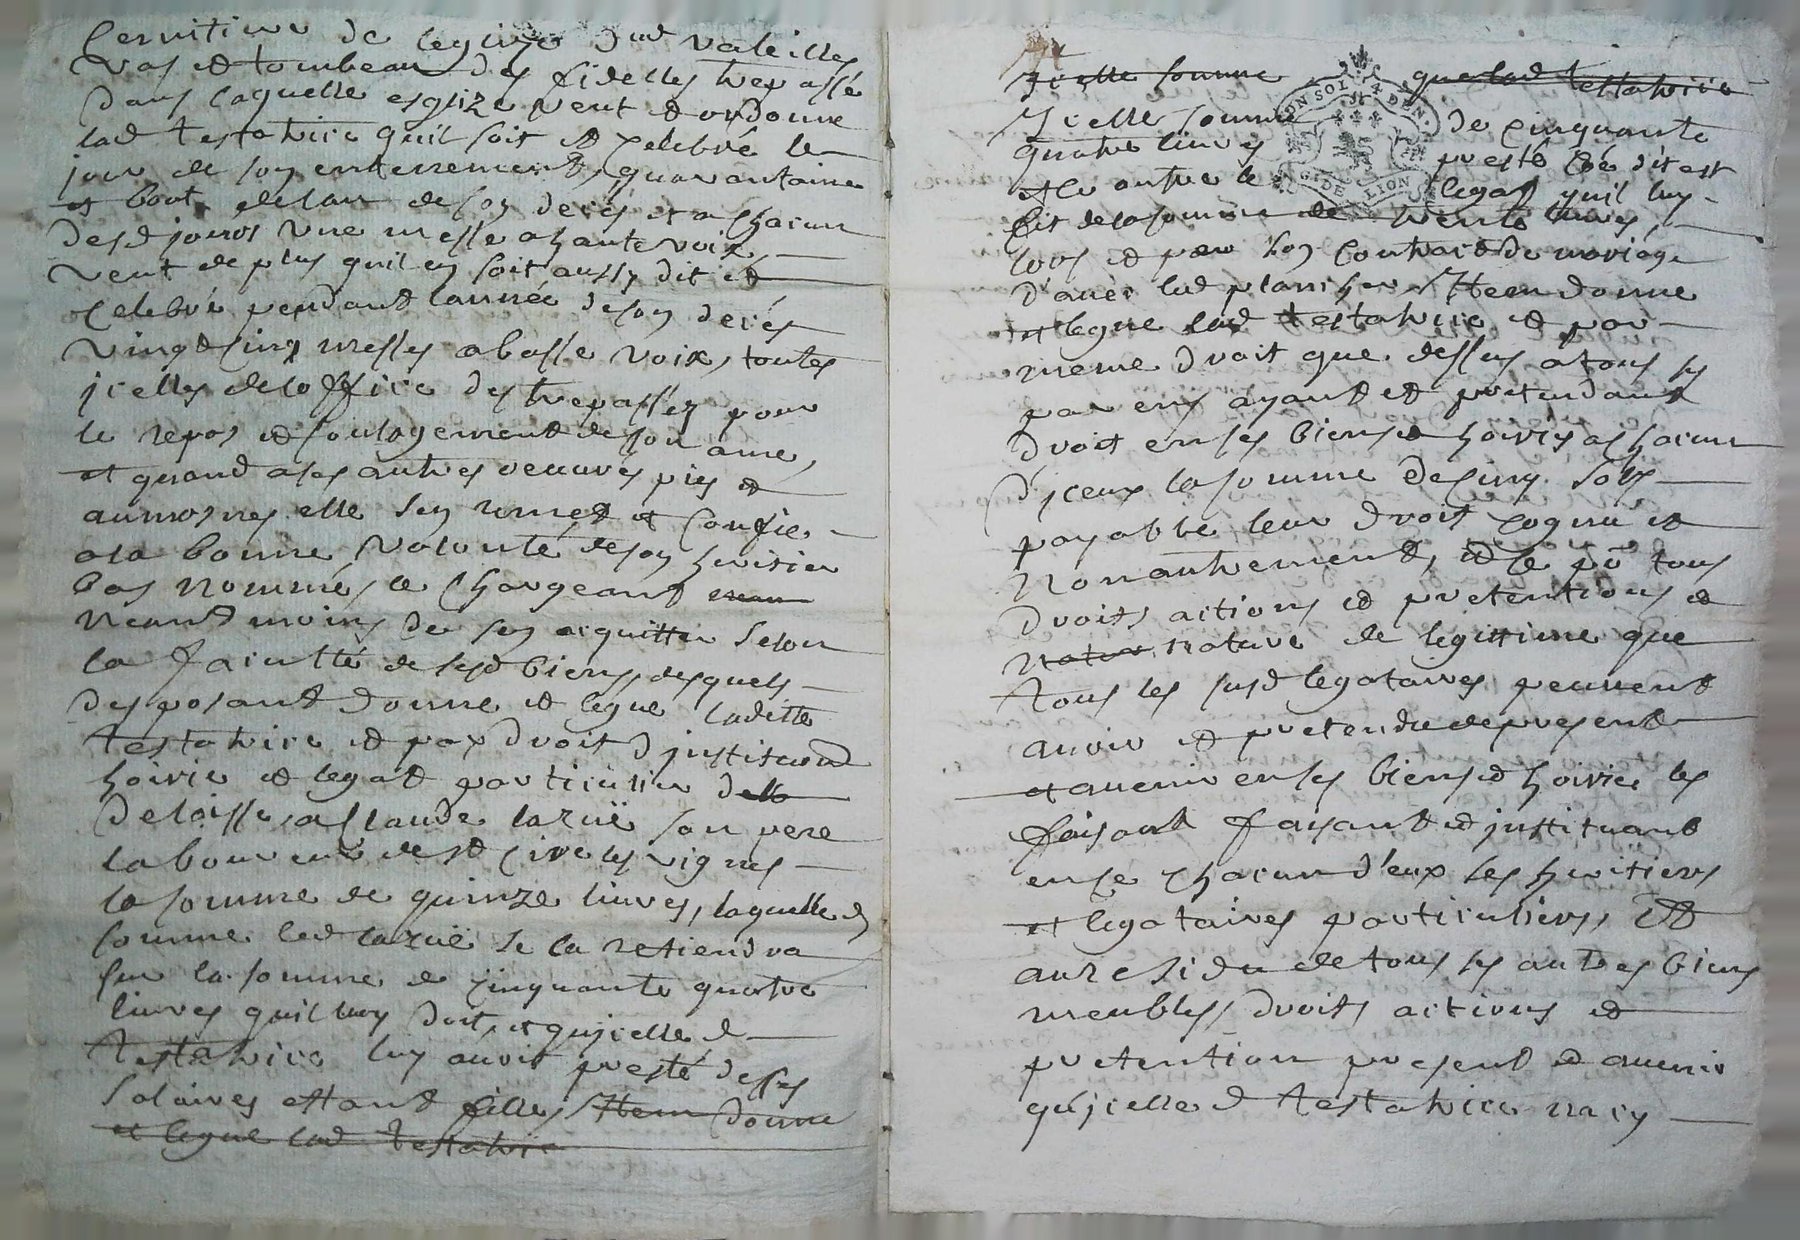 Cemitiere de leglize dud valeilles
vas et tombeau des fidelles trepassé
dans laquelle esglize veut et ordonne
lad testatrice quil soit et celebré le
jour de son enterrement, quarantaine
et bout delan de son deces et a chacun
desd jours une messe a haute voix
veut de plus quil en soit aussy dit et
celebré pendant lannée deson deces
vingt cinq messes a basse voix, toutes
jcelles deloffice des trepassez pour
le repos et soulagement de son ame,
et quand a ses autres oeuvres pies et
aumosnes elle sen remet et confie
a la bonne volonté deson heritier
bas nommé, le chargeant
neantmoins de sen acquitter selon
la faculté de sesd biens, desquels
desposant donne et legue ladette
testatrice et par droit djnstitution
hoirie et legat particulier
delaisse a Claude laruë son pere
laboureur de st Cire les vignes
la somme de quinze livres, laquelle d
somme led laruë se la retiendra
sur la somme de cinquante quatre
livres quil luy doit, et qujcelle d
testatrice luy avoit presté desses
salaires estant fille, Item donne
et legue lad testatrice
jcelle somme que lad testatrice
Jcelle somme de cinquante
quatre livres presté Co͞e dit est
et le outre le legat quil luy
fit de la somme de trente livres,
lors et par son contract de mariage
d'avec led plancher Item donne
et legue lad testatrice et par
meme droit que dessus a tous ses
parens ayant et pretendant
droit en ses biens et hoirie a chacun
d'jceux la somme de cinq sols
payable leur droit cognu et
non autrement, et ce po͞ tous
droits actions et pretentions et
nature de legittime que
tous les susd legataires peuvent
avoir et pretendre de present
et avenir en ses biens et hoirie les
faisant faysant et jnstituant
en ce chacun d'eux ses heritiers
et legataires particuliers, Et
au residu de tous ses autres biens
meubles, droits actions et
pretention present et avenir
qujcelle d testatrice na cy
ON SOL 4 DEN
G. DE LION